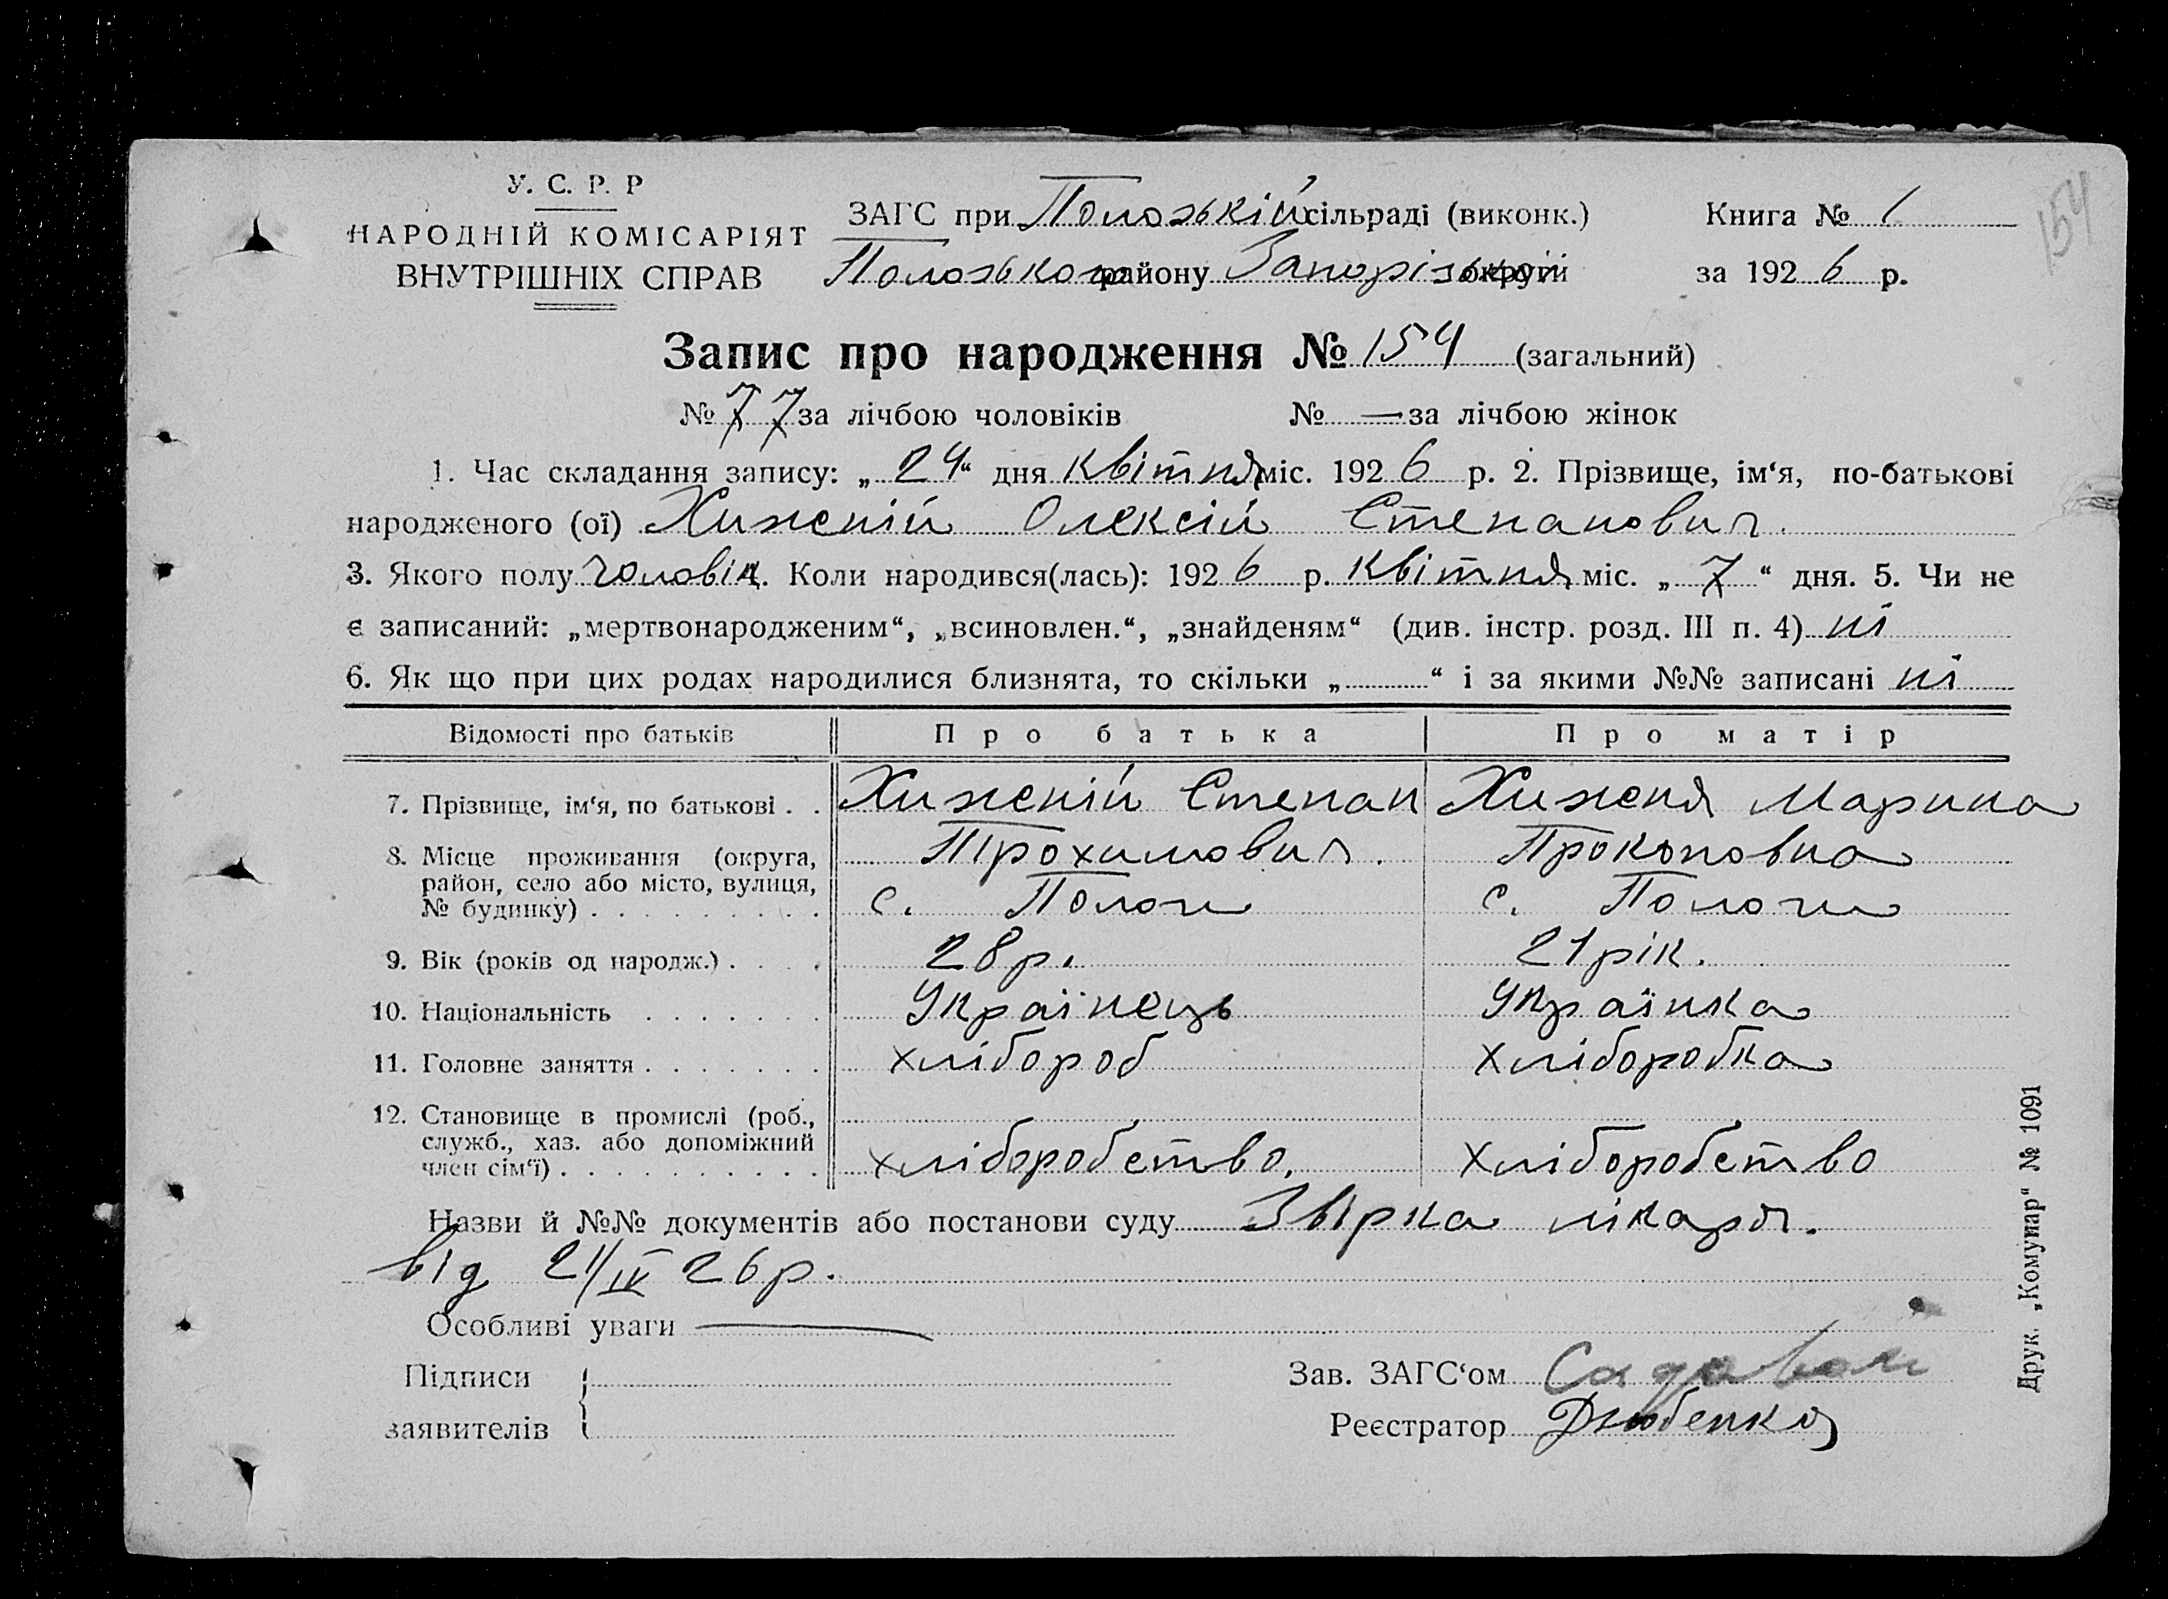 У. С. Р. Р
НАРОДНІЙ КОМІСАРІЯТ
ВНУТРІШНІХ СПРАВ
ЗАГС при Положькій сільраді (виконк.)
Положького району Запоріжької округи
Книга № 1
за 1926 р.
154
Запис про народження № 154 (загальний)
№ 77 за лічбою чоловіків № — за лічбою жінок
1. Час складання запису: „24“ дня квітня міс. 1926 р. 2. Прізвище, ім‘я, по-батькові
народженого (ої) Хижній Олексій Степанович.
3. Якого полу чоловіч. Коли народився(лась): 1926 р. квітня міс. „7“ дня. 5. Чи не
є записаний: „мертвонародженим“, „всиновлен.“, „знайденям“ (див. інстр. розд. III п. 4) ні
6. Як що при цих родах народилися близнята, то скільки „ “ і за якими №№ записані ні
Відомості про батьків Про батька Про матір
7. Прізвище, ім‘я, по батькові . . Хижній Степан Хижня Марина
Трохимович. Прокоповна
8. Місце проживання (округа,
район, село або місто, вулиця,
№ будинку) . . . . . . . . . с. Пологи с. Пологи
9. Вік (років од народж.) . . . . 28 р. 21 рік.
10. Національність . . . . . . . Українець Українка
11. Головне заняття . . . . . . . хлібороб хліборобка
12. Становище в промислі (роб.,
служб., хаз. або допоміжний
член сім‘ї) . . . . . . . . . . хліборобство. хліборобство
Назви й №№ документів або постанови суду Звірка лікаря.
від 21/IV 26 р.
Особливі уваги —
Підписи
заявителів
Зав. ЗАГС‘ом
Реєстратор Дзюбенко
Друк. „Комунар“ № 1091